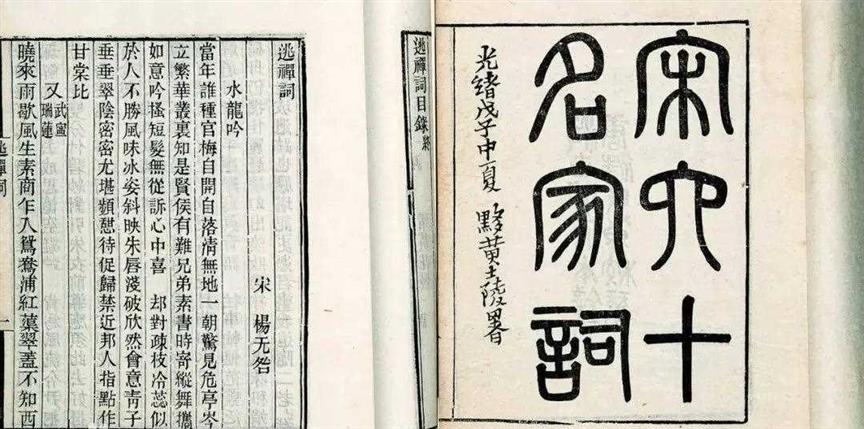 宋六十
名家詞
光緒戊子中夏 黟黃士陵署
逃禪詞目錄終
逃禪詞
宋 楊无咎
水龍吟
當年誰種官梅自開自落清無地一朝驚見危亭岑
立繁華叢裏知是賢侯有難兄弟素書時寄縱舞攜
如意吟搔短髮無從訴心中喜 却對疎枝冷蕊似
於人不勝風味冰姿斜映朱唇淺破欣然會意靑子
垂垂翠陰密密尤堪頻憇待促歸禁近邦人指點作
甘棠比
又 武寧瑞蓮
曉來雨歇風生素商乍入鴛鴦浦紅蕖翠蓋不知西
逃禪詞 一